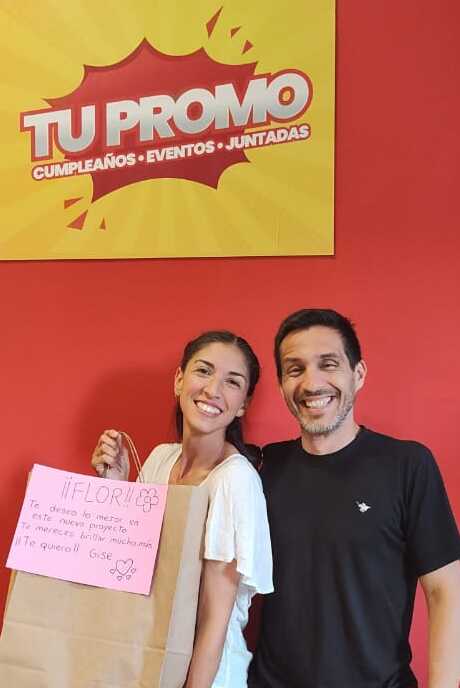 TU PROMO
CUMPLEAÑOS • EVENTOS • JUNTADAS
¡¡FLOR!!
Te deseo lo mejor en
este nuevo proyecto
Te mereces brillar mucho más.
¡¡Te quiero!! Gise